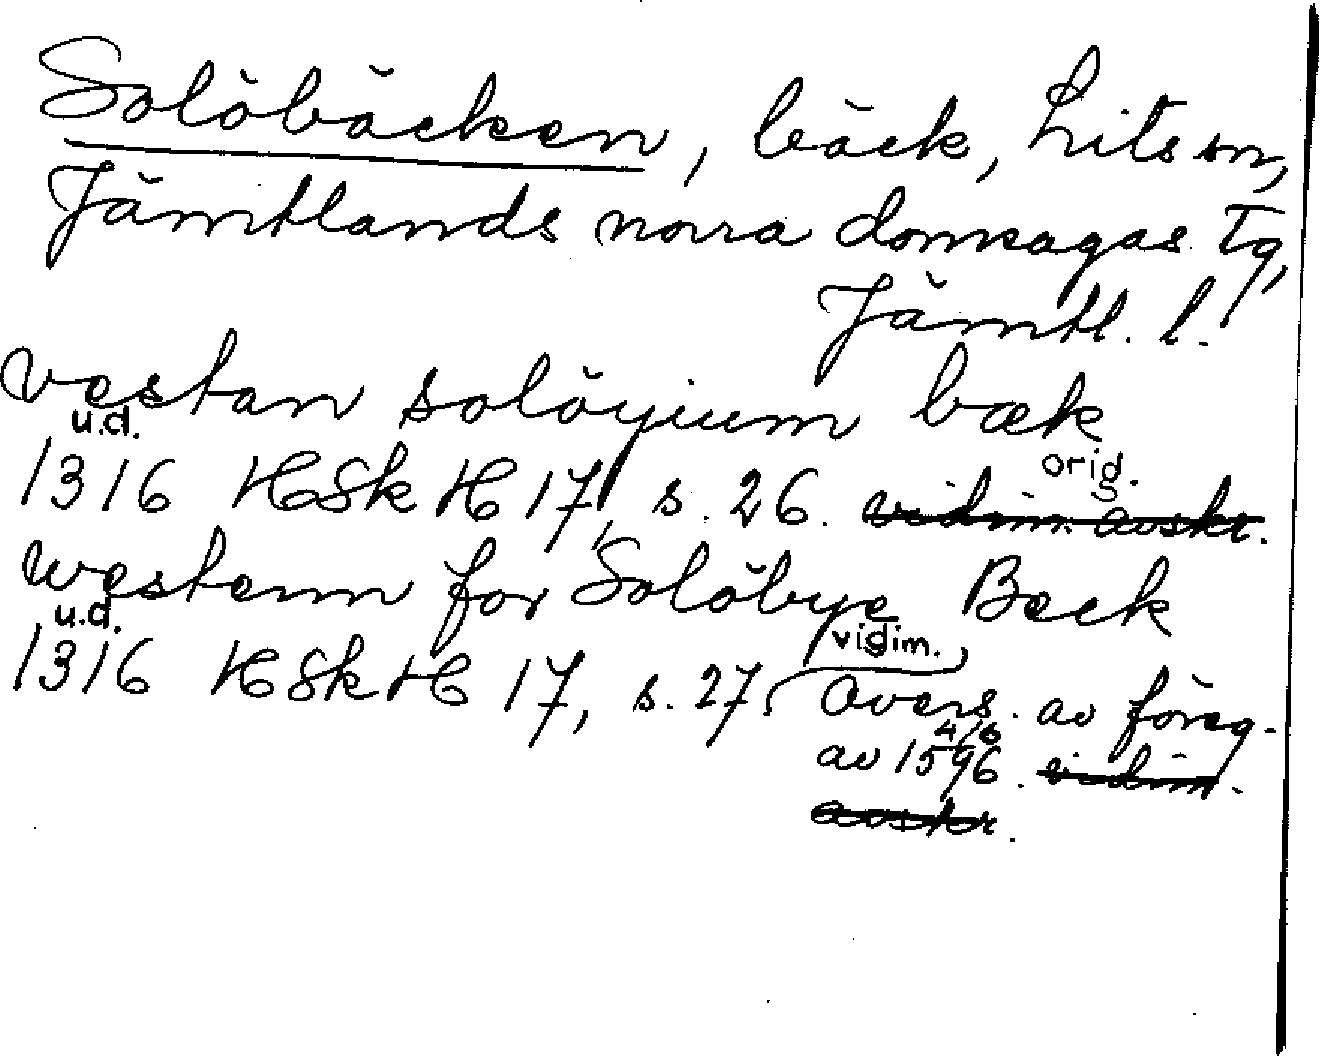 Solöbäcken, bäck, Lits sn,
Jämtlands norra domsagas tg,
Jämtl. l.
vestan solöyium bæk
u.d.
1316 HSk H 17, s. 26. orig. vidim. avskr.
westenn for Solöbye Beck
u.d.
1316 HSk H 17, s. 27. vidim.
Övers. av föreg.
av 1596 4/6. vidim.
avskr.